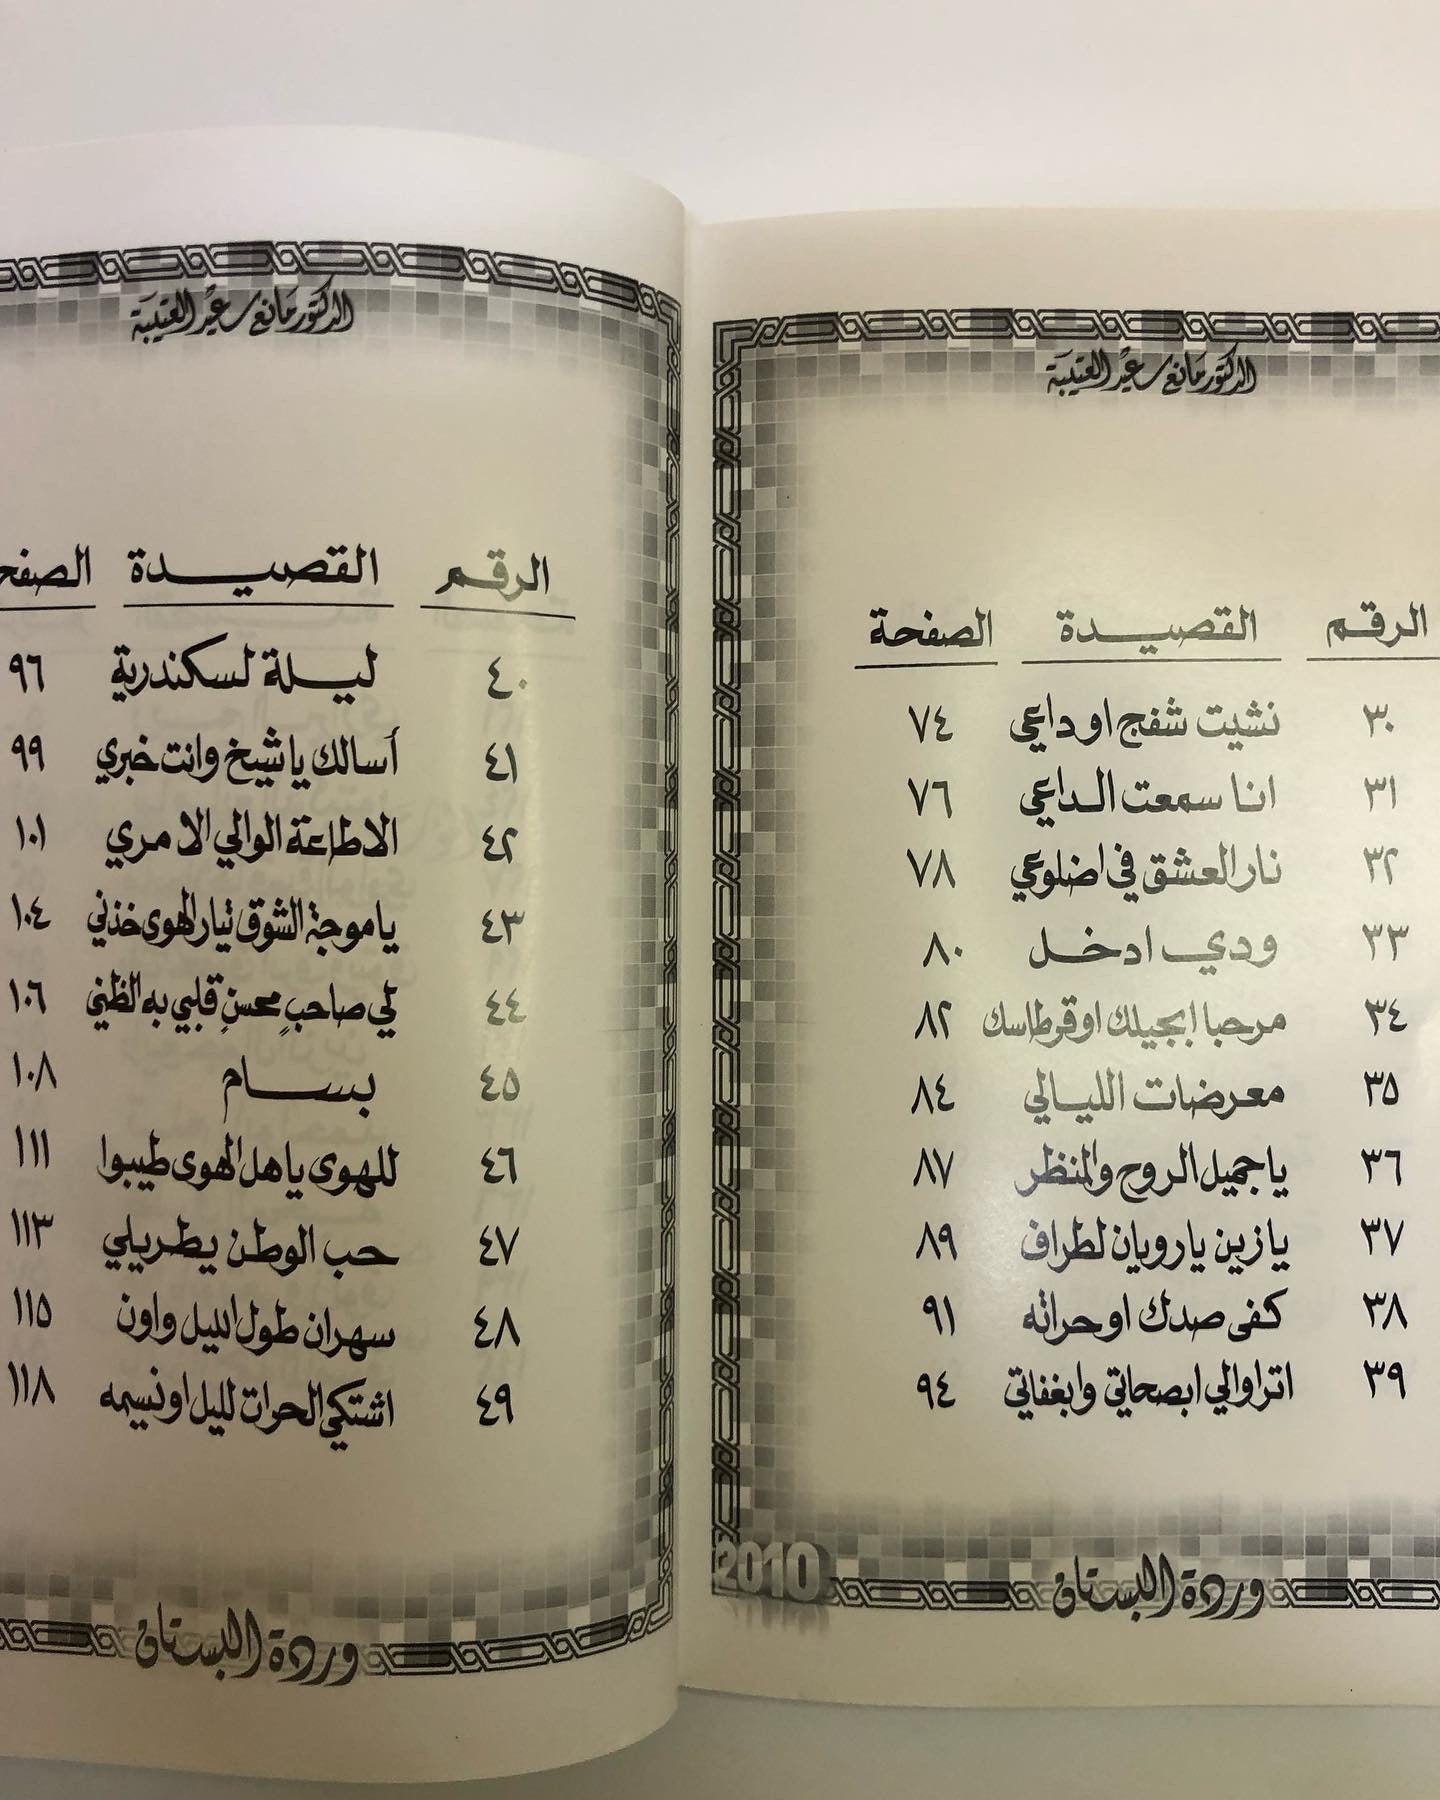 الدكتور مانع سعيد العتيبة
الرقم القصيدة الصفحة
٣٠ نشيت شفج اوداعي ٧٤
٣١ انا سمعت الداعي ٧٦
٣٢ نار العشق في اضلوعي ٧٨
٣٣ ودي ادخل ٨٠
٣٤ مرحبا ابجيلك اوقرطاسك ٨٢
٣٥ معرضات الليالي ٨٤
٣٦ ياجميل الروح والمنظر ٨٧
٣٧ يازين يارويان لطراف ٨٩
٣٨ كفى صدك اوحراته ٩١
٣٩ اتراوالي ابصحاتي وابغفاتي ٩٤
2010
وردة البستان
الدكتور مانع سعيد العتيبة
الرقم القصيدة الصفح
٤٠ ليلة لسكندرية ٩٦
٤١ أسالك ياشيخ وانت خبري ٩٩
٤٢ الاطاعة الوالي الامري ١٠١
٤٣ ياموجة الشوق تيار الهوى خذني ١٠٤
٤٤ لي صاحبٍ محسنِ قلبي به الظني ١٠٦
٤٥ بسام ١٠٨
٤٦ للهوى ياهل الهوى طيبوا ١١١
٤٧ حب الوطن يطريلي ١١٣
٤٨ سهران طول الليل واون ١١٥
٤٩ اشتكي الحرات لليل اونسيمه ١١٨
وردة البستان